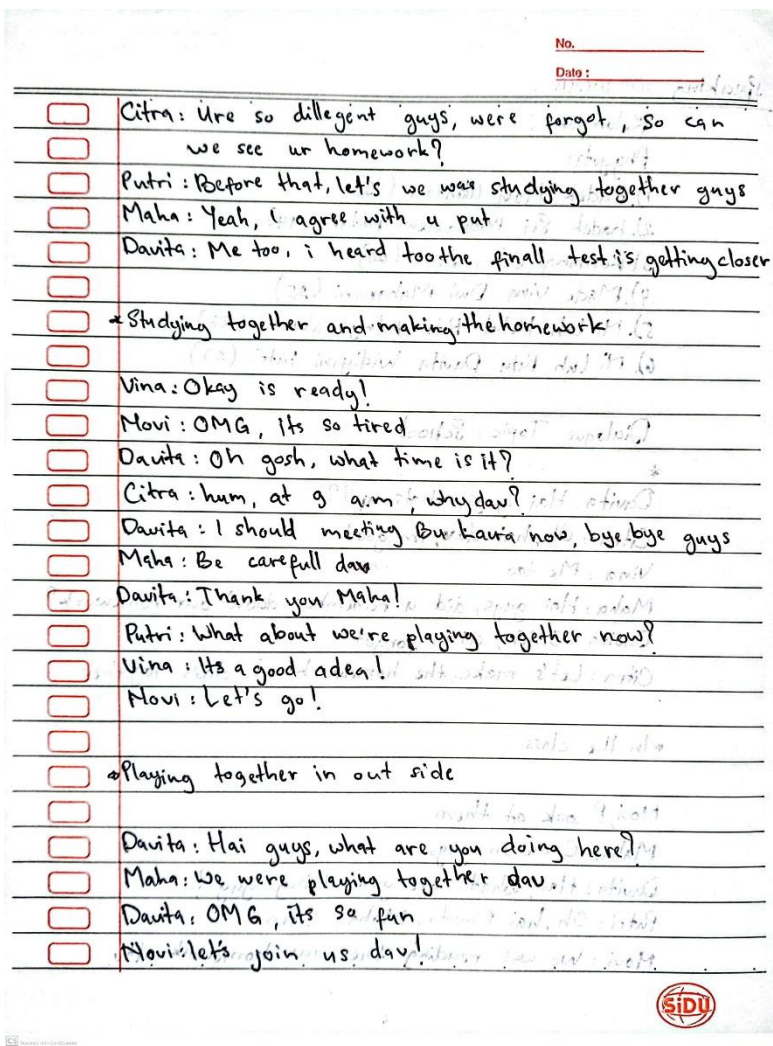 No.
Date :
Citra : Ure so dillegent guys, we're forgot, so can
we see ur homework?
Putri : Before that, let's we was studying together guys
Maha : Yeah, i agree with u put
Davita : Me too, i heard too the finall test is getting closer
* Studying together and making the homework
Vina : Okay is ready!
Novi : OMG, its so tired
Davita : Oh gosh, what time is it?
Citra : hum, at 9 a.m, why dav?
Davita : I should meeting Bu Laura now, bye bye guys
Maha : Be carefull dav
Davita : Thank you Maha!
Putri : What about we're playing together now?
Vina : Its a good adea!
Novi : Let's go!
* Playing together in out side
Davita : Hai guys, what are you doing here?
Maha : We were playing together dav
Davita : OMG, its so fun
Novi : let's join us dav!
SiDU
CS